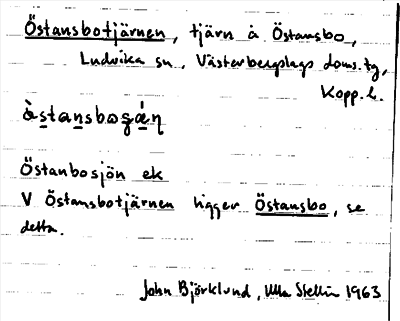 Östansbotjärnen, tjärn å Östansbo,
Ludvika sn., Västerbergslags doms.tg,
Kopp.l.
Östanbosjön ek
V Östansbotjärnen ligger Östansbo, se
detta.
John Björklund, Ulla Stellin 1963